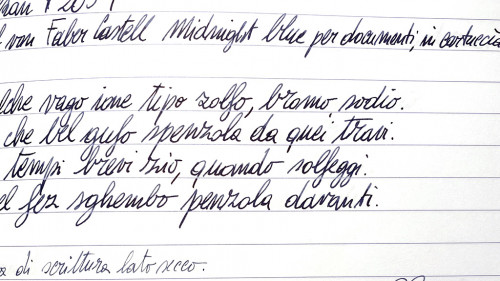 von Faber Castell Midnight blue per documenti, in cartuccia
che vago ione tipo zolfo, bramo sodio.
che bel gufo spenzola da quei travi.
tempi brevi zio, quando solfeggi.
fez sghembo penzola davanti.
di scrittura lato secco.